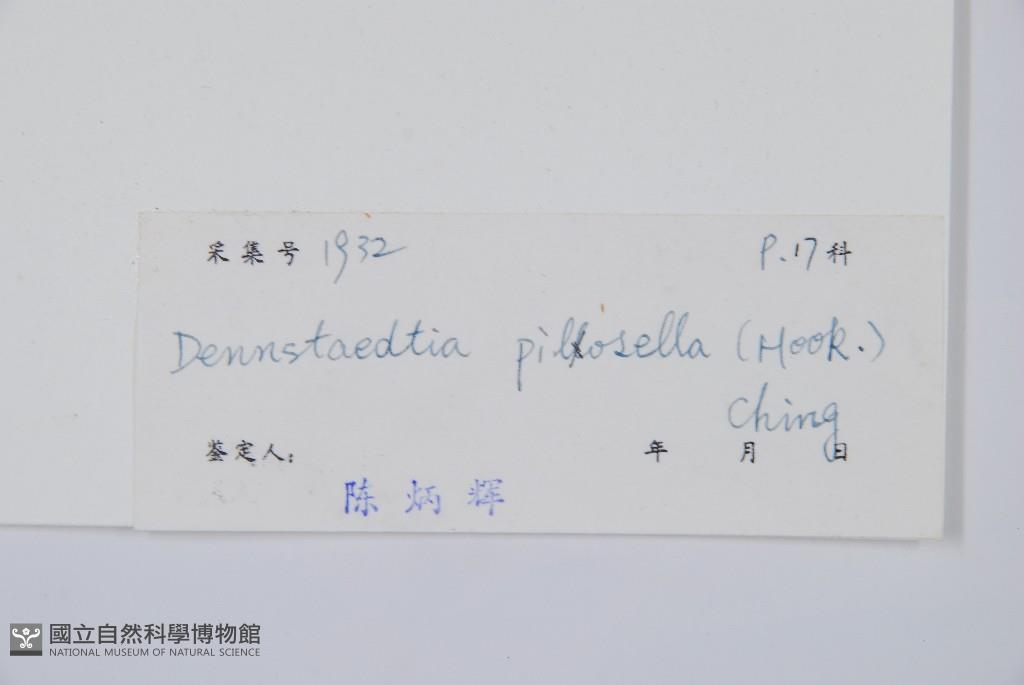 采集号 1932 P.17科
Dennstaedtia pilosella (Hook.)
Ching
鉴定人: 年 月 日
陈炳辉
國立自然科學博物館
NATIONAL MUSEUM OF NATURAL SCIENCE